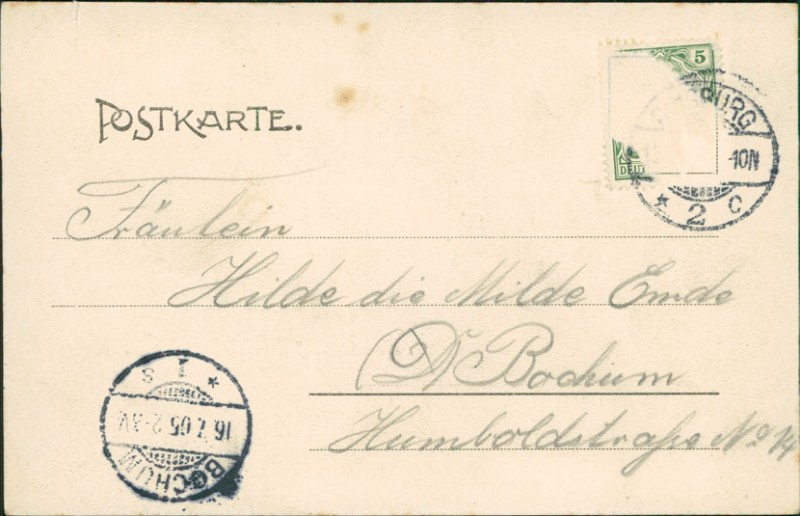 POSTKARTE.
5
DEUT
BURG
-10N
* 2 c
Fräulein
Hilde die Milde Emde
(D) Bochum
Humboldstraße No 14
BOCHUM
16.7.05.2-3V.
* 1 s